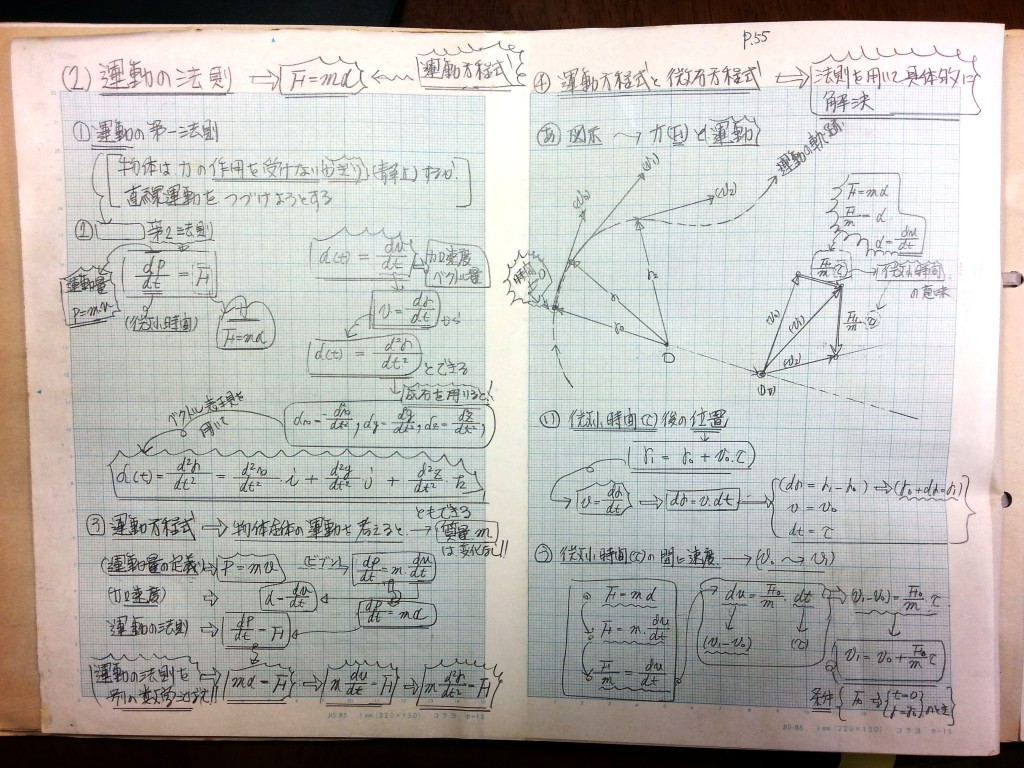 (2) 運動の法則 → F=mα ← 運動方程式
① 運動の第一法則
物体は、力の作用を受けない限り、静止するか、
直線運動をつづけようとする
② 第2法則
運動量
P=mv
dP/dt = F
(微小時間)
F=mα
α(t) = dv/dt
加速度
ベクトル量
v = dr/dt から
α(t) = d²r/dt² とできる
成分を用いると!
ベクトル表現を
用いて
αx = d²x/dt², αy = d²y/dt², αz = d²z/dt²,
α(t) = d²r/dt² = d²x/dt² i + d²y/dt² j + d²z/dt² k
ともできる
③ 運動方程式 → 物体全体の運動を考えると、→ 質量m
は変化なし!!
(運動量の定義) → P=mv (ビブン) → dP/dt = m dv/dt
(加速度) → α = dv/dt
dP/dt = mα
運動の法則 → dP/dt = F
運動の法則を
mα = F → m dv/dt = F → m d²r/dt² = F
JIS B5 1mm (220×150) コクヨ ホ-15
P.55
④ 運動方程式と微分方程式 → 法則を用いて具体的に
解決
あ 図示 〜 力(F)と運動
運動の軌跡
(v0)
(v1)
(v2)
時間
t=0
r0
r1
r2
O
F=mα
F/m = α
α = dv/dt
F0/m τ → 微小時間
の意味
F1/m τ
(v0)
(v1)
(v2)
い) 微小時間(τ)後の位置
r1 = r0 + v0.τ
v = dr/dt → dr = v.dt →
(dr = r1 - r0) → (r0+dr=r1)
v = v0
dt = τ
う) 微小時間(τ)の間に速度 → (v0 〜 v1)
F = mα
F = m. dv/dt
F/m = dv/dt
dv = F0/m. dt → (v1-v0) = F0/m τ
(v1-v0) (τ)
v1 = v0 + F0/m τ
条件 F0 ⇒ t=0 r=r0 のとき
JIS B5 1mm (220×150) コクヨ ホ-15